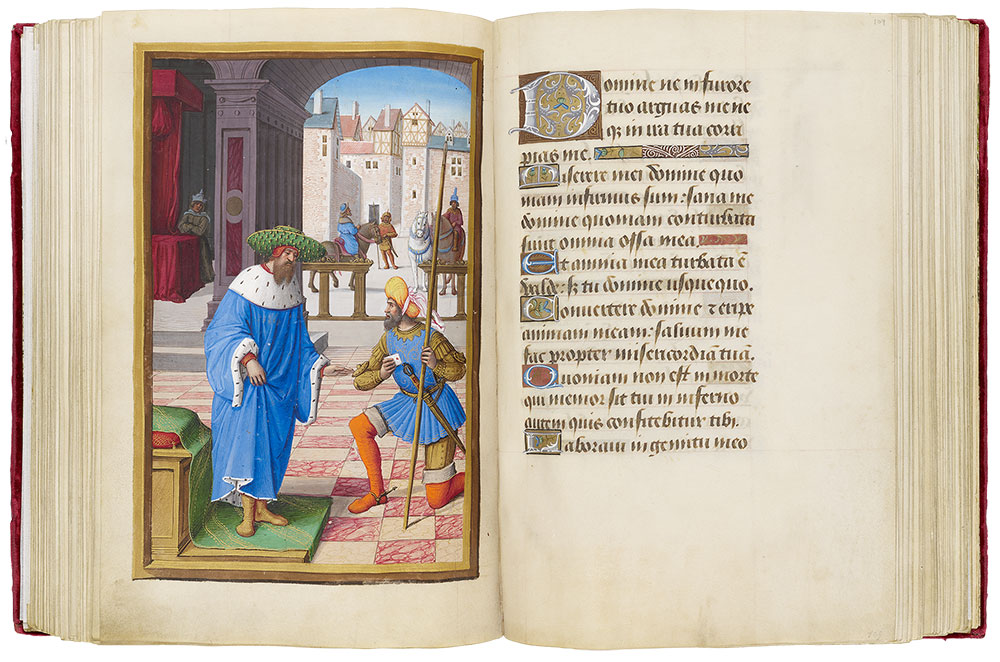 Domine ne in furore
tuo arguas me ne
qȝ in ira tua corri
pias me.
Miserere mei domine quo
niam infirmus sum: sana me
domine quoniam conturbata
sunt omnia ossa mea.
Et anima mea turbata ē
valde: sȝ tu domine usquequo.
Convertere domine ⁊ eripe
animam meam: salvum me
fac propter misericordiā tuā.
Quoniam non est in morte
qui memor sit tui in inferno
autem quis confitebitur tibi.
Laboravi in gemitu meo